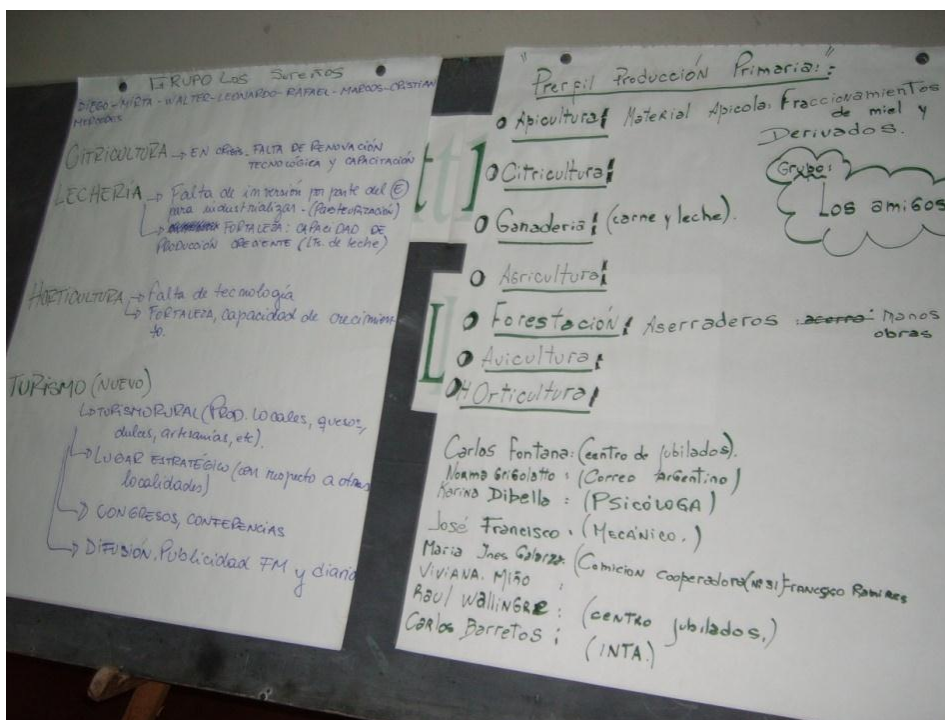 GRUPO LOS SUREÑOS
DIEGO - MIRTA - WALTER - LEONARDO - RAFAEL - MARCOS - CRISTIAN
MERCEDES
CITRICULTURA → EN FALTA DE RENOVACIÓN
TECNOLÓGICA Y CAPACITACIÓN
LECHERÍA → Falta de inversión por parte del Ⓔ
para industrializar - (Pasteurización)
→ FORTALEZA: CAPACIDAD DE
PRODUCCIÓN CRECIENTE (Lts. de leche)
HORTICULTURA → Falta de tecnología
→ FORTALEZA, Capacidad de crecimien
to.
TURISMO (NUEVO)
→ TURISMO RURAL (PROD. LOcales, quesos,
dulces, artesanías, etc).
→ LUGAR ESTRATÉGICO (con respecto a otras
localidades)
→ CONGRESOS, CONFERENCIAS
→ DIFUSIÓN. Publicidad FM y diario
"Perfil Producción Primaria":
Apicultura: Material Apicola. Fraccionamientos
de miel y
Derivados.
Citricultura:
Grupo:
Los amigos
Ganaderia: (carne y leche).
Agricultura:
Forestación: Aserraderos Manos
obras
Avicultura:
HOrticultura:
Carlos Fontana: (centro de jubilados).
Norma Grigolatto: (Correo Argentino)
Karina Dibella: (PSICÓLOGA)
José Francisco. (MECÁNICO.)
Maria Ines Galarza: (Comicion Cooperadora (Nº 31) FRANCISCO RAMIRES
VIVIANA. MIÑO :
Raul WallinGRE: (CENTRO jubilados.)
Carlos Barretos: (INTA.)